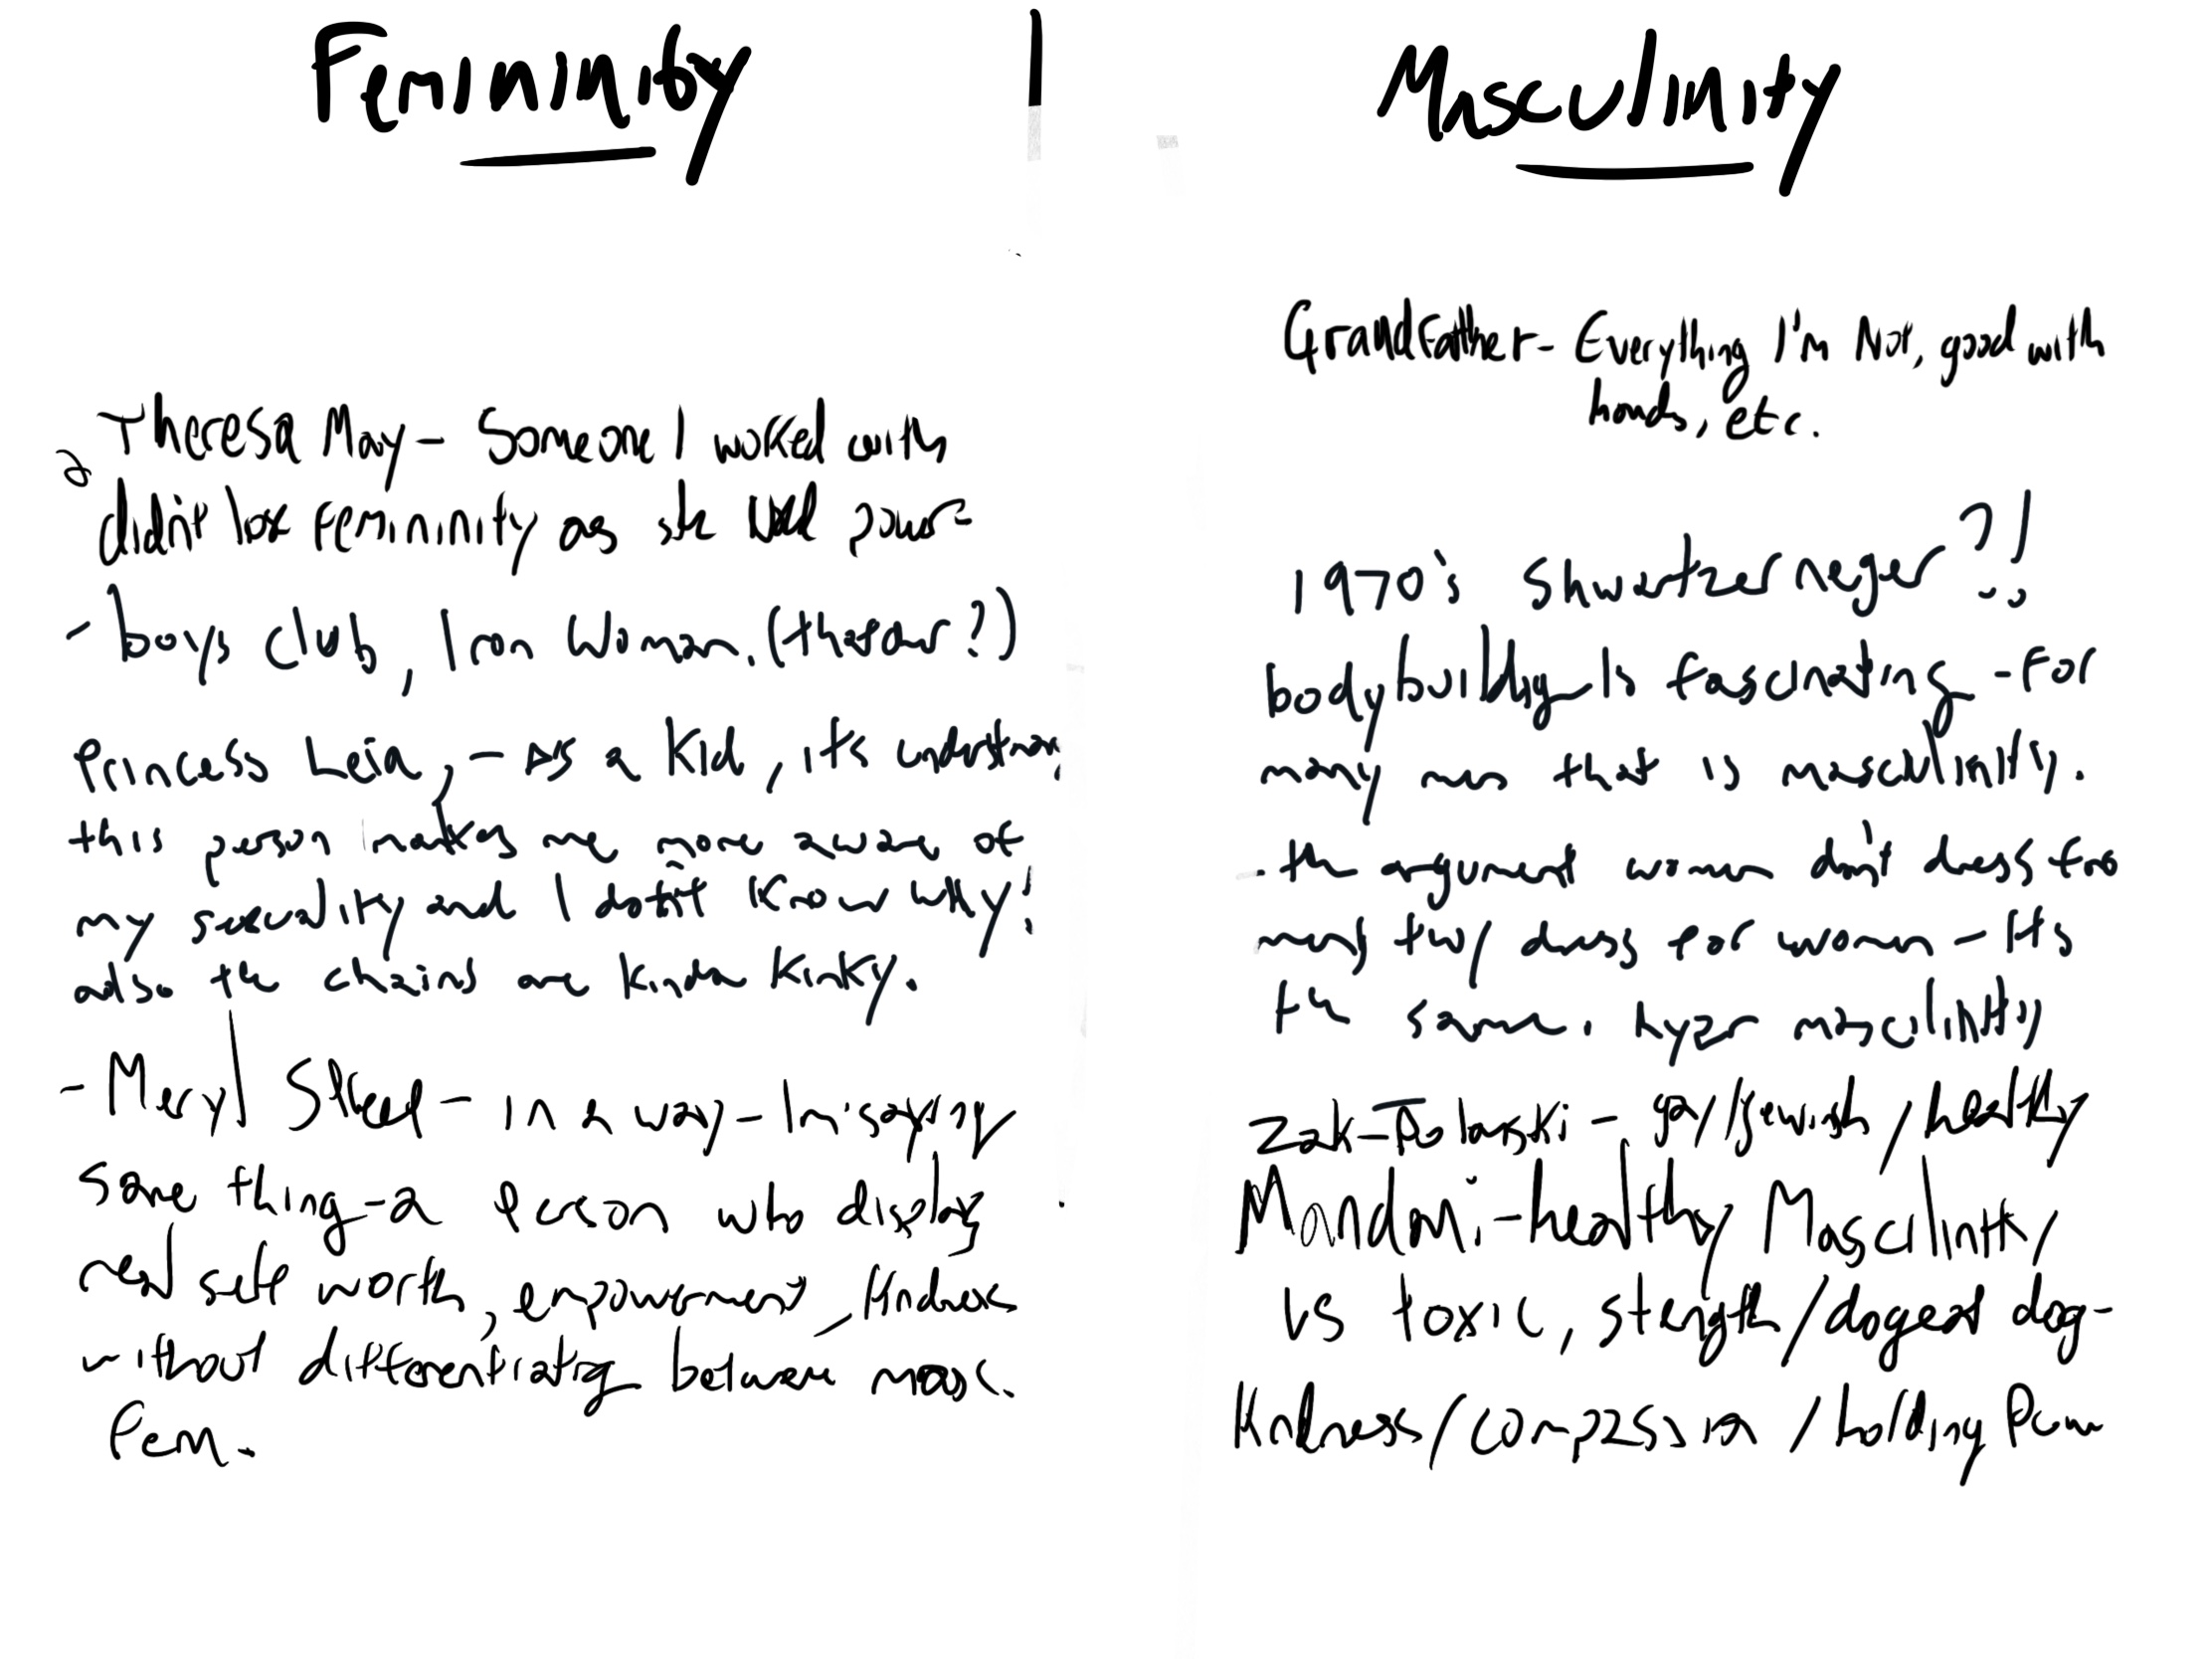 Femininity
Theresa May - Someone I worked with
didn't lose femininity as she held power
- boys club, Iron Woman. (thatcher?)
Princess Leia, - As a Kid, it's understanding
this person makes me more aware of
my sexuality and I don't know why!
also the chains are kinda kinky.
- Meryl Streep - in a way - Im saying
same thing - a person who displays
real self worth, empowerment, kindness
without differentiating between masc.
fem.
Masculinity
Grandfather - Everything I'm Not, good with
hands, etc.
1970's Shwartzerneger?!
bodybuilding is fascinating - For
many men that is masculinity.
- the argument women don't dress for
men, they dress for women - Its
the same. hyper masculinity
Zak-Polanski - gay/jewish/healthy
Mamdani - healthy Masculinity/
vs toxic, strength/dogeat dog -
Kindness/compassion/holding Power